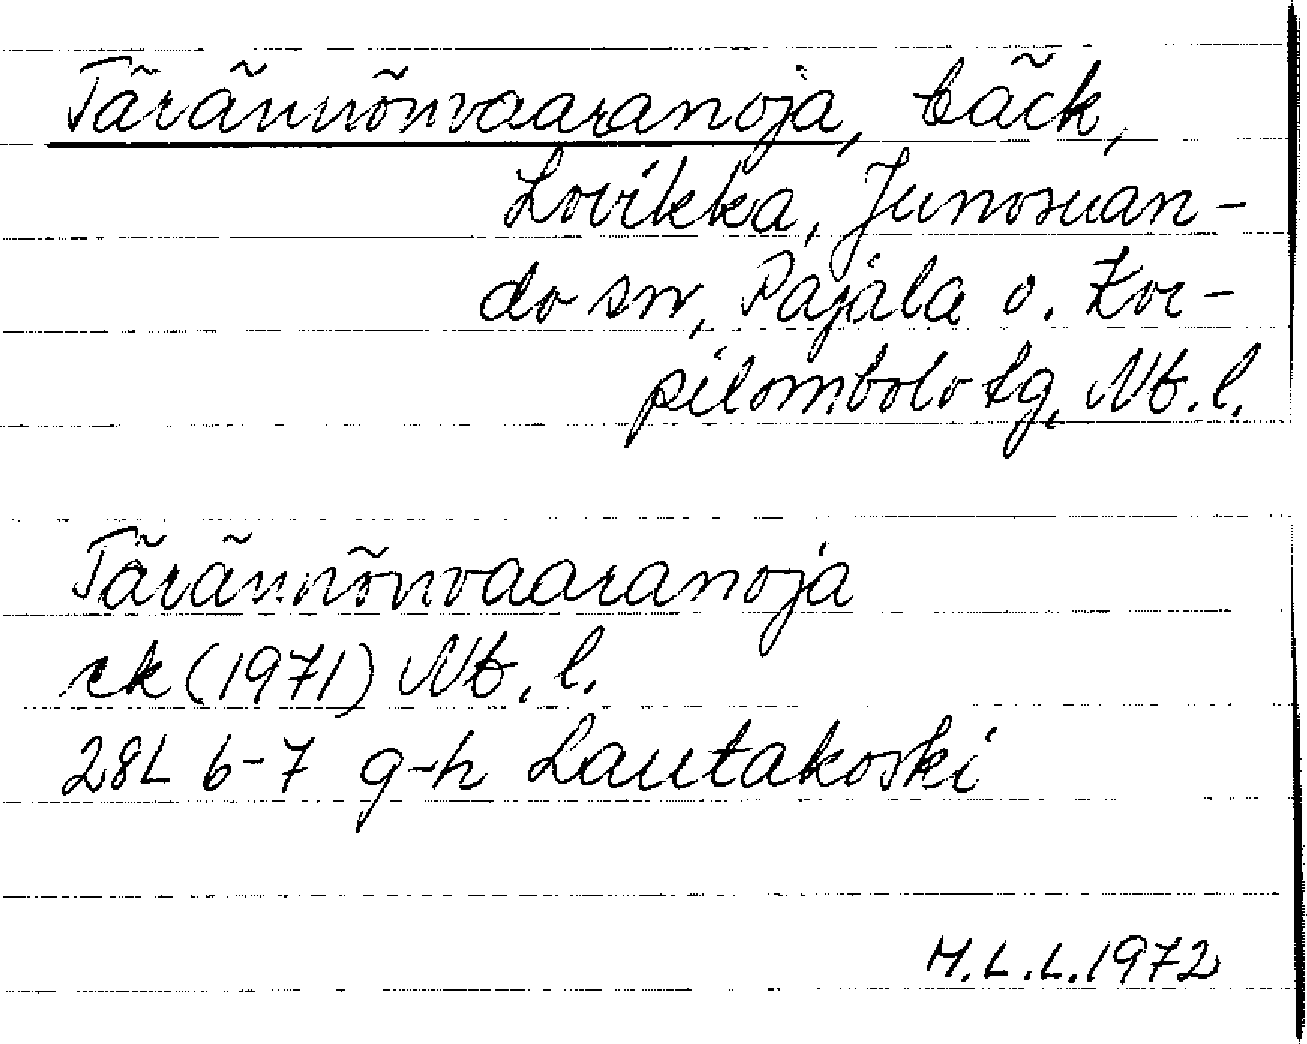 Tärännönvaaranoja, bäck,
Lovikka, Junosuan-
do sn, Pajala o. Kor-
pilombolo tg, Nb. l.
Tärännönvaaranoja
ek (1971) Nb. l.
28L 6-7 g-h Lautakoski
M.L.L. 1972